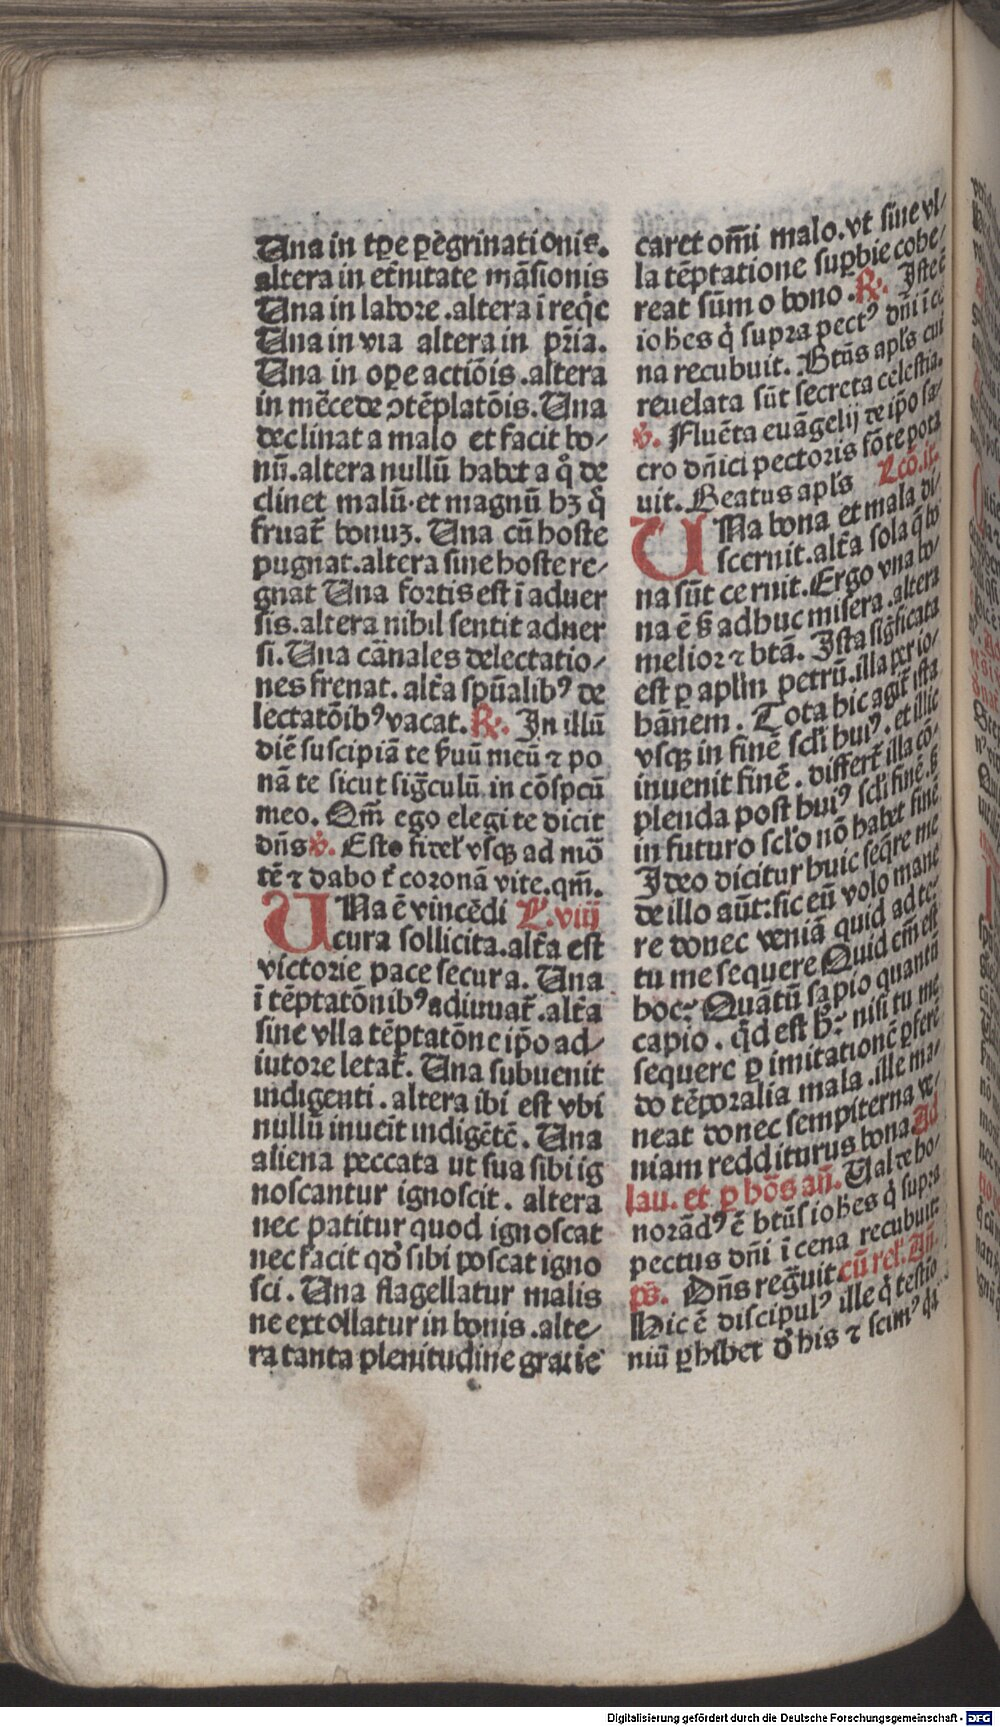 Una in tꝑe ꝑegrinationis.
altera in et̄nitate māsionis
Una in labore .altera ī req̄e
Una in via altera in pr̄ia.
Una in oꝑe actiōis .altera
in mēcede ↄtēplatōis. Una
declinat a malo et facit bo⸗
nū. altera nullū habet a q̊ de
clinet malū. et magnū hꝫ q̊
fruat᷑ bonuꝫ. Una cū hoste
pugnat. altera sine hoste re⸗
gnat Una fortis est ī aduer
sis. altera nihil sentit aduer
si. Una cānales delectatio⸗
nes frenat. alt̄a spūalibꝰ de
lectatōibꝰ vacat. ℟. In illū
diē suscipiā te ẜuū meū ⁊ po
nā te sicut sig̅culū in cōspcū
meo. Qm̄ ego elegi te dicit
dn̄s ℣. Esto fidel᷑ vsqꝫ ad mō
tē ⁊ dabo t̄ coronā vite. qm̄.
UNa ē vincēdi L᷑. viij
cura sollicita. alt̄a est
victorie pace secura. Una
ī tēptatōnibꝰ adiuuat᷑. alt̄a
sine vlla tēptatōne ip̄o ad⸗
iutore letat᷑. Una subuenit
indigenti. altera ibi est vbi
nullū inueīt indigētē. Una
aliena peccata ut sua sibi ig
noscantur ignoscit. altera
nec patitur quod ignoscat
nec facit qđ sibi poscat igno
sci. Una flagellatur malis
ne extollatur in bonis. alte⸗
ra tanta plenitudine gratie
caret om̄i malo. vt sine vl⸗
la tēptatione suꝑbie cohe⸗
reat sūmo bono. ℟. Iste ē
ioħes q̇ supra pectꝰ dn̄i ī ce
na recubuit. Btūs apl̄s cui
reuelata sūt secreta celestia.
℣. Fluēta euāgelij de ip̄o sa⸗
cro dn̄ici pectoris fōte pota
uit. Beatus apl̄s Lcō. ix.
UNa bona et mala di⸗
scernit. alt̄a sola q̄ bo
na sūt cernit. Ergo vna bo⸗
na ē ꝫ adhuc misera. altera
melior ⁊ btā. Ista sig̅ficata
est ꝑ aplm̄ petrū. illa per io⸗
hānem. Tota hic agit᷑ ista
vsqꝫ in finē scl̄i huiꝰ. et illic
inuenit finē. differt᷑ illa cō⸗
plenda post huiꝰ scl̄i finē. ꝫ
in futuro scl̄o nō habet finē
Ideo dicitur huic seq̄re me
de illo aūt: sic eū volo mane
re donec veniā quid ad te:
tu me sequere Quid em̄ est
hoc? Quātū sapio quantū
capio. qđ est h̄? nisi tu me
sequere ꝑ imitationē ꝑferē
do tēporalia mala. ille ma⸗
neat donec sempiterna ve⸗
niam redditurus bona Ad
lau. et ꝑ hōs an̄. Ualde ho⸗
norādꝰ ē btūs ioħes q̇ supra
pectus dn̄i ī cena recubuit.
ps̄. Dn̄s reg̅uit cū rel᷑. An̄.
Hic ē discipulꝰ ille q̇ testio
niū ꝑhibet đ his ⁊ scimꝰ q̇a
Digitalisierung gefördert durch die Deutsche Forschungsgemeinschaft - DFG